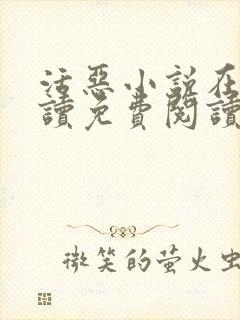 活惡小説在
讀免費閱讀
微笑的萤火虫